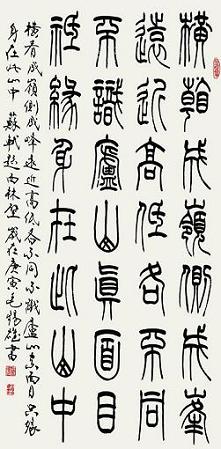 橫看成嶺側成峯
遠近高低各不同
不識廬山眞面目
祇緣身在此山中
橫看成嶺側成峰遠近高低各不同不識廬山真面目只緣
身在此山中 蘇軾題西林壁 歲在庚寅 毛 雄書